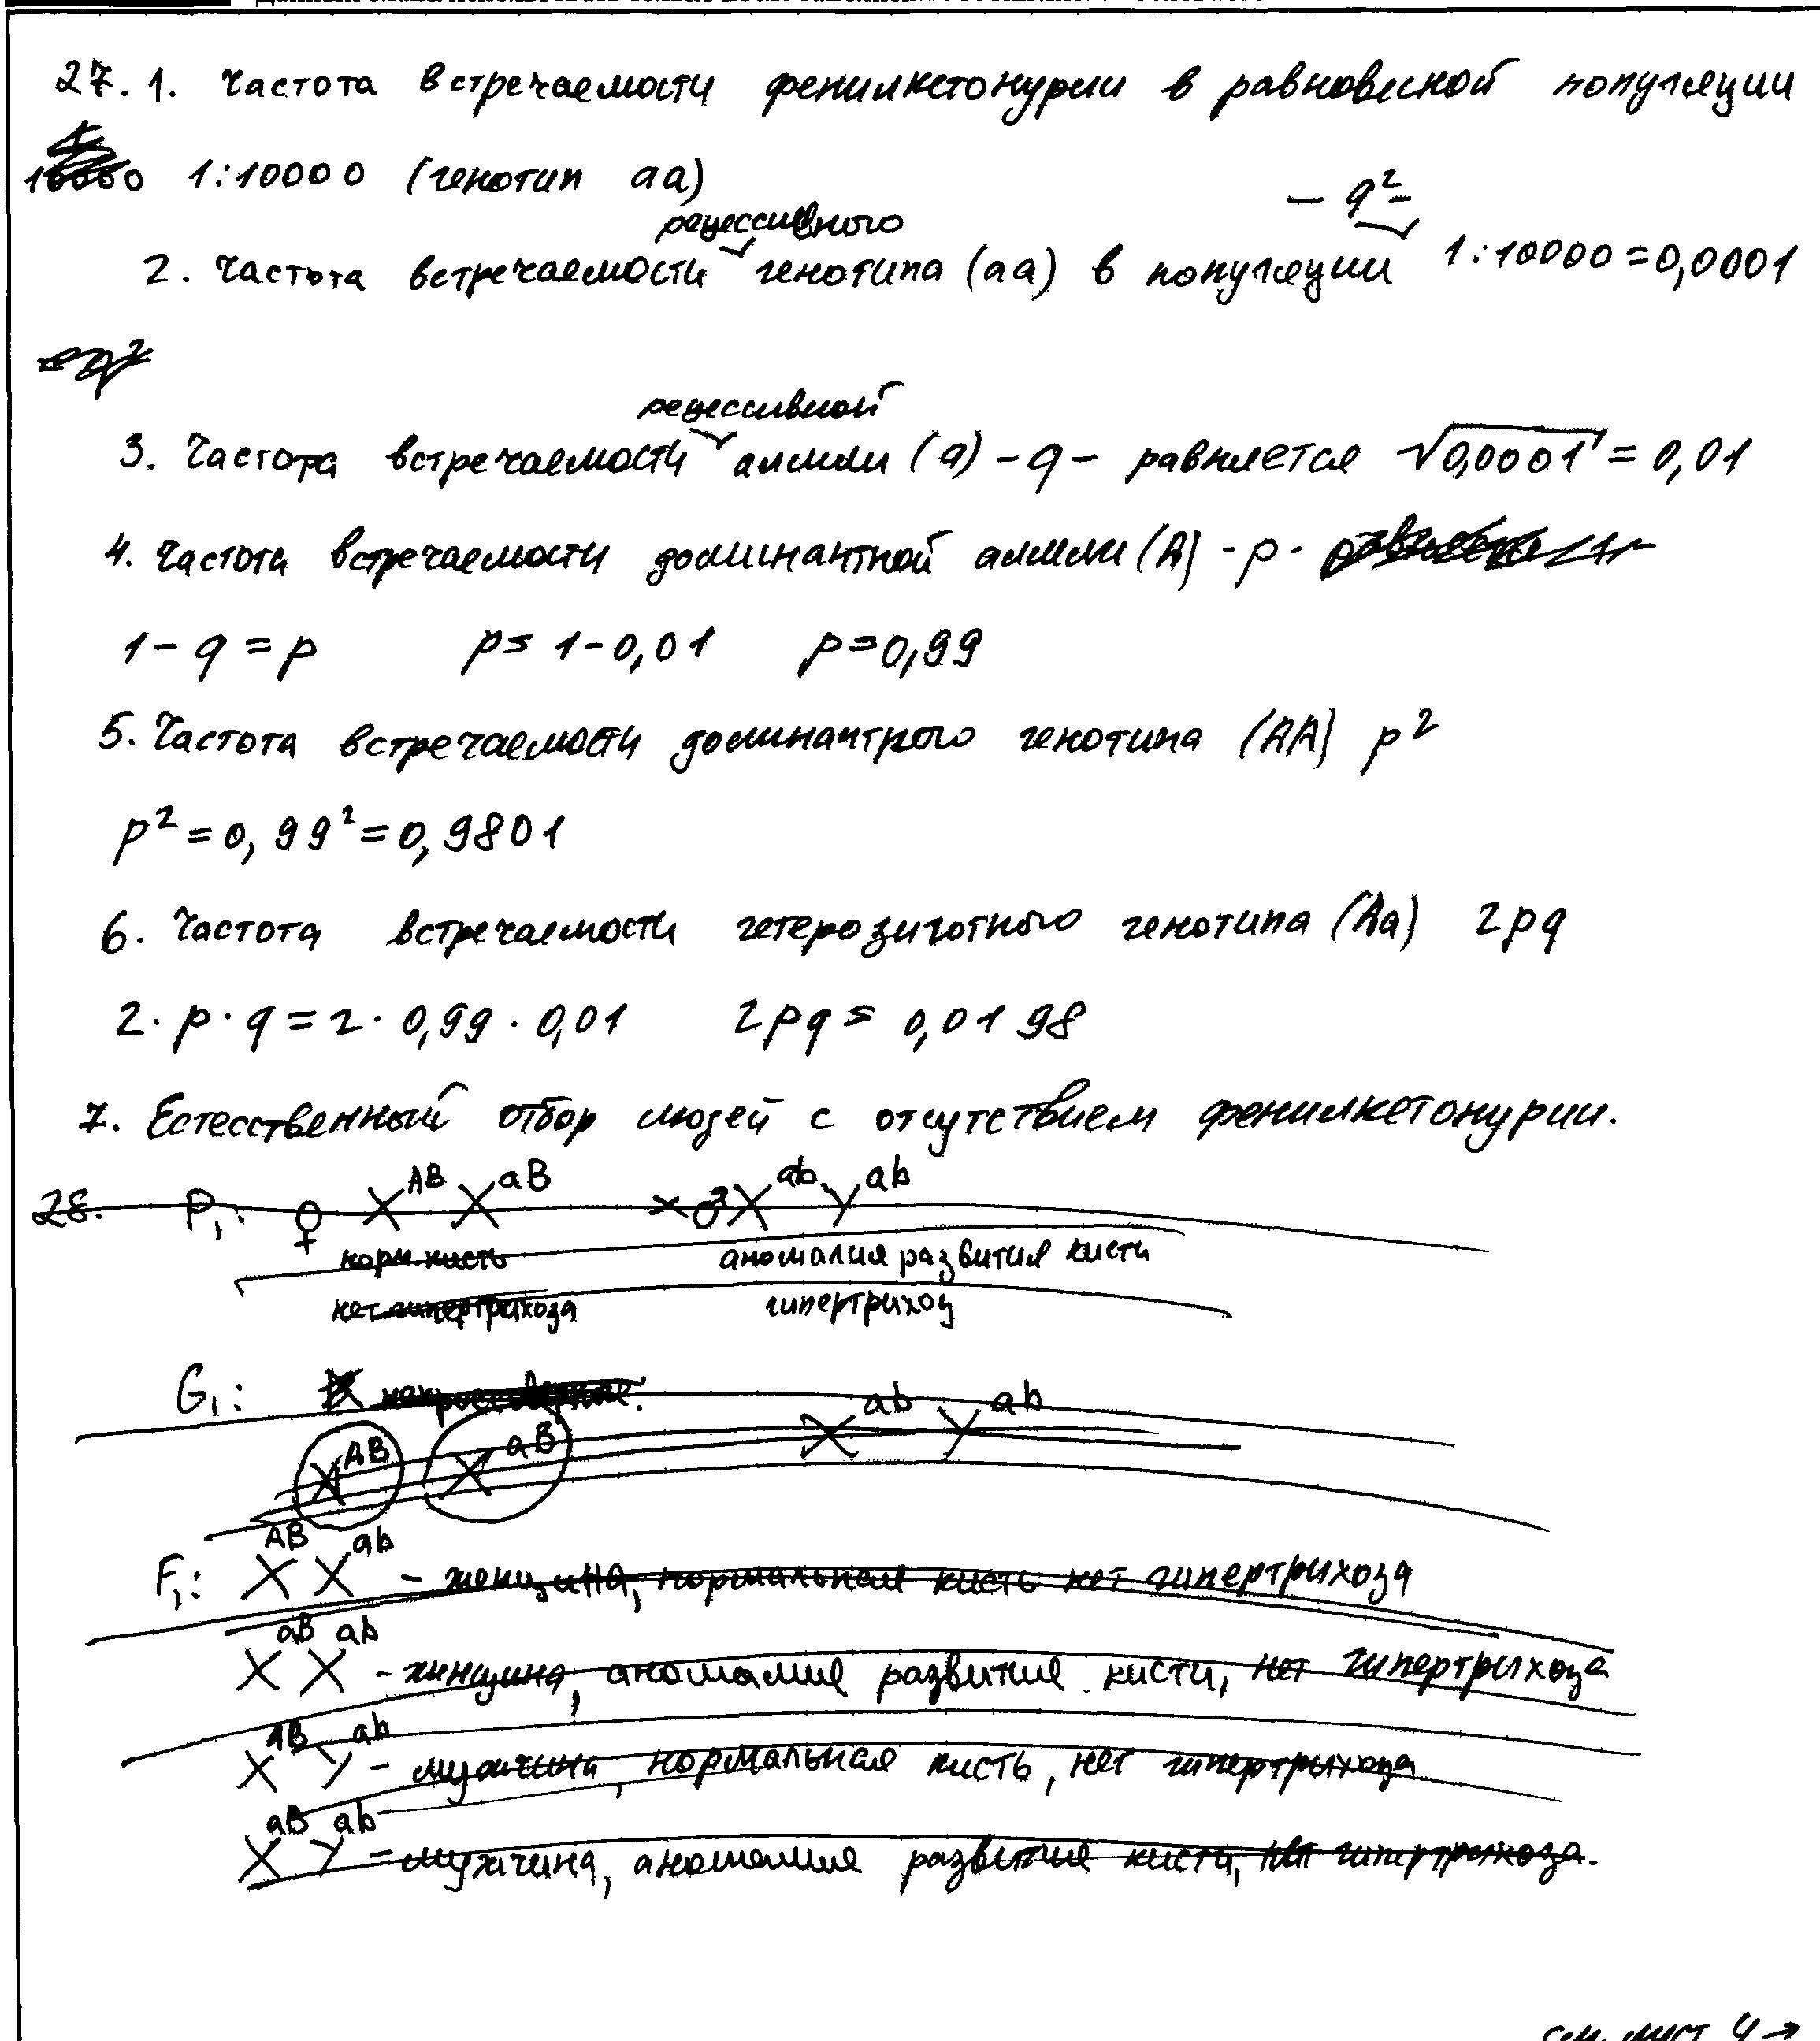 27. 1. Частота встречаемости фенилкетонурии в равновесной популяции
1:10000 (генотип аа)
рецессивного
– q² –
2. Частота встречаемости генотипа (аа) в популяции 1:10000 = 0,0001
q²
рецессивной
3. Частота встречаемости аллели (а) – q – равняется √0,0001 = 0,01
4. Частота встречаемости доминантной аллели (А) - р.
1 - q = p p = 1 - 0,01 p = 0,99
5. Частота встречаемости доминантрого генотипа (АА) р²
р² = 0,99² = 0,9801
6. Частота встречаемости гетерозиготного генотипа (Аа) 2pq
2 · p · q = 2 · 0,99 · 0,01 2pq = 0,0198
7. Естесственный отбор людей с отсутствием фенилкетонурии.
28. P₁: ♀ X^AB X^aB × ♂ X^ab Y^ab
норм. кисть аномалия развития кисти
нет гипертрихоза гипертрихоз
G₁:
X^AB X^aB X^ab Y^ab
F₁: X^AB X^ab – женщина, нормальная кисть нет гипертрихоза
X^aB X^ab – женщина, аномалия развития кисти, нет гипертрихоза
X^AB Y^ab – мужчина, нормальная кисть, нет гипертрихоза
X^aB Y^ab – мужчина, аномалия развития кисти, нет гипертрихоза.
см. лист 4 →